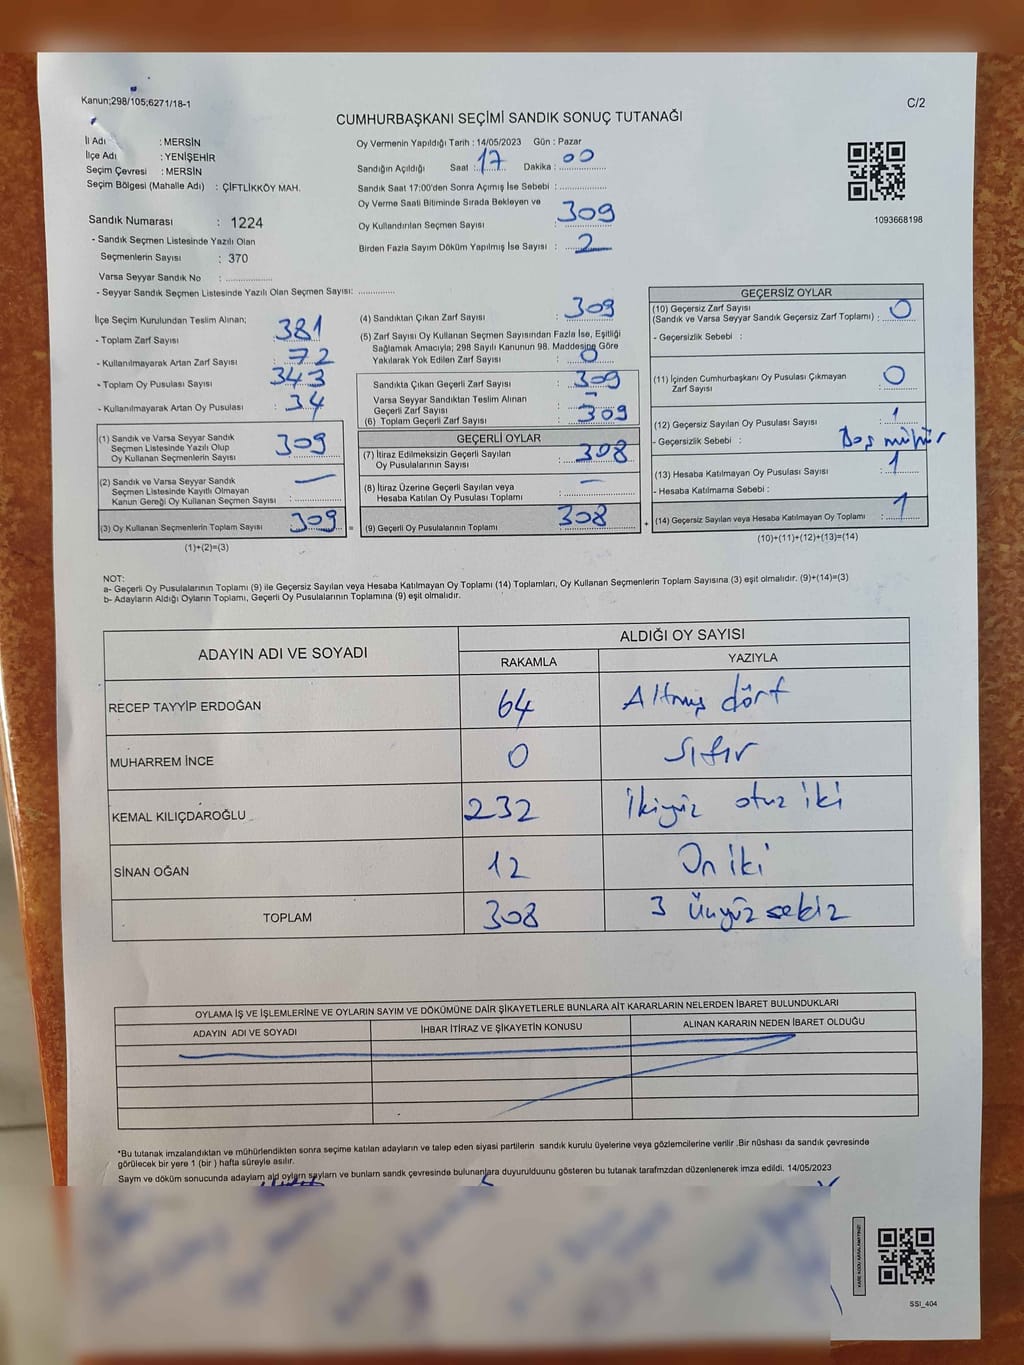 Kanun;298/105;6271/18-1
C/2
CUMHURBAŞKANI SEÇİMİ SANDIK SONUÇ TUTANAĞI
İl Adı : MERSİN
İlçe Adı : YENİŞEHİR
Seçim Çevresi : MERSİN
Seçim Bölgesi (Mahalle Adı) : ÇİFTLİKKÖY MAH.
Sandık Numarası : 1224
- Sandık Seçmen Listesinde Yazılı Olan
Seçmenlerin Sayısı : 370
Varsa Seyyar Sandık No : ..............
- Seyyar Sandık Seçmen Listesinde Yazılı Olan Seçmen Sayısı: ............
Oy Vermenin Yapıldığı Tarih : 14/05/2023 Gün : Pazar
Sandığın Açıldığı Saat : 17 Dakika : 00
Sandık Saat 17:00'den Sonra Açımış İse Sebebi : ..............
Oy Verme Saati Bitiminde Sırada Bekleyen ve
Oy Kullandırılan Seçmen Sayısı : 309
Birden Fazla Sayım Döküm Yapılmış İse Sayısı : 2
1093668198
İlçe Seçim Kurulundan Teslim Alınan;
- Toplam Zarf Sayısı : 381
- Kullanılmayarak Artan Zarf Sayısı : 72
- Toplam Oy Pusulası Sayısı : 343
- Kullanılmayarak Artan Oy Pusulası : 34
(1) Sandık ve Varsa Seyyar Sandık
Seçmen Listesinde Yazılı Olup
Oy Kullanan Seçmenlerin Sayısı : 309
(2) Sandık ve Varsa Seyyar Sandık
Seçmen Listesinde Kayıtlı Olmayan
Kanun Gereği Oy Kullanan Seçmen Sayısı : —
(3) Oy Kullanan Seçmenlerin Toplam Sayısı : 309 =
(1)+(2)=(3)
(4) Sandıktan Çıkan Zarf Sayısı : 309
(5) Zarf Sayısı Oy Kullanan Seçmen Sayısından Fazla İse, Eşitliği
Sağlamak Amacıyla; 298 Sayılı Kanunun 98. Maddesine Göre
Yakılarak Yok Edilen Zarf Sayısı : 0
Sandıkta Çıkan Geçerli Zarf Sayısı : 309
Varsa Seyyar Sandıktan Teslim Alınan
Geçerli Zarf Sayısı : —
(6) Toplam Geçerli Zarf Sayısı : 309
GEÇERLİ OYLAR
(7) İtiraz Edilmeksizin Geçerli Sayılan
Oy Pusulalarının Sayısı : 308
(8) İtiraz Üzerine Geçerli Sayılan veya
Hesaba Katılan Oy Pusulası Toplamı : —
(9) Geçerli Oy Pusulalarının Toplamı : 308 +
GEÇERSİZ OYLAR
(10) Geçersiz Zarf Sayısı
(Sandık ve Varsa Seyyar Sandık Geçersiz Zarf Toplamı) : 0
- Geçersizlik Sebebi :
(11) İçinden Cumhurbaşkanı Oy Pusulası Çıkmayan
Zarf Sayısı : 0
(12) Geçersiz Sayılan Oy Pusulası Sayısı : 1
- Geçersizlik Sebebi : Boş mühür
(13) Hesaba Katılmayan Oy Pusulası Sayısı : 1
- Hesaba Katılmama Sebebi :
(14) Geçersiz Sayılan veya Hesaba Katılmayan Oy Toplamı : 1
(10)+(11)+(12)+(13)=(14)
NOT:
a- Geçerli Oy Pusulalarının Toplamı (9) ile Geçersiz Sayılan veya Hesaba Katılmayan Oy Toplamı (14) Toplamları, Oy Kullanan Seçmenlerin Toplam Sayısına (3) eşit olmalıdır. (9)+(14)=(3)
b- Adayların Aldığı Oyların Toplamı, Geçerli Oy Pusulalarının Toplamına (9) eşit olmalıdır.
ADAYIN ADI VE SOYADI ALDIĞI OY SAYISI
RAKAMLA YAZIYLA
RECEP TAYYİP ERDOĞAN 64 Altmış dört
MUHARREM İNCE 0 Sıfır
KEMAL KILIÇDAROĞLU 232 İkiyüz otuz iki
SİNAN OĞAN 12 On iki
TOPLAM 308 3 Üçyüz sekiz
OYLAMA İŞ VE İŞLEMLERİNE VE OYLARIN SAYIM VE DÖKÜMÜNE DAİR ŞİKAYETLERLE BUNLARA AİT KARARLARIN NELERDEN İBARET BULUNDUKLARI
ADAYIN ADI VE SOYADI İHBAR İTİRAZ VE ŞİKAYETİN KONUSU ALINAN KARARIN NEDEN İBARET OLDUĞU
*Bu tutanak imzalandıktan ve mühürlendikten sonra seçime katılan adayların ve talep eden siyasi partilerin sandık kurulu üyelerine veya gözlemcilerine verilir .Bir nüshası da sandık çevresinde
görülecek bir yere 1 (bir ) hafta süreyle asılır.
Sayım ve döküm sonucunda adayların ald oyların sayların ve bunların sandk çevresinde bulunanlara duyurulduunu gösteren bu tutanak tarafmzdan düzenlenerek imza edildi. 14/05/2023
SSI_404